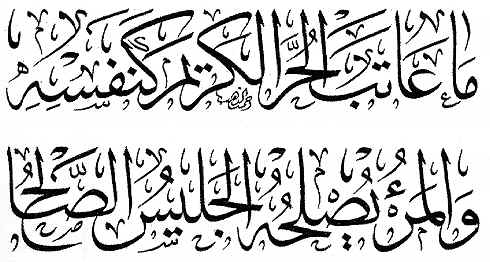 مَا عَاتَبَ الْحُرَّ الْكَرِيمَ كَنَفْسِهِ
وَالْمَرْءُ يُصْلِحُهُ الْجَلِيسُ الصَّالِحُ